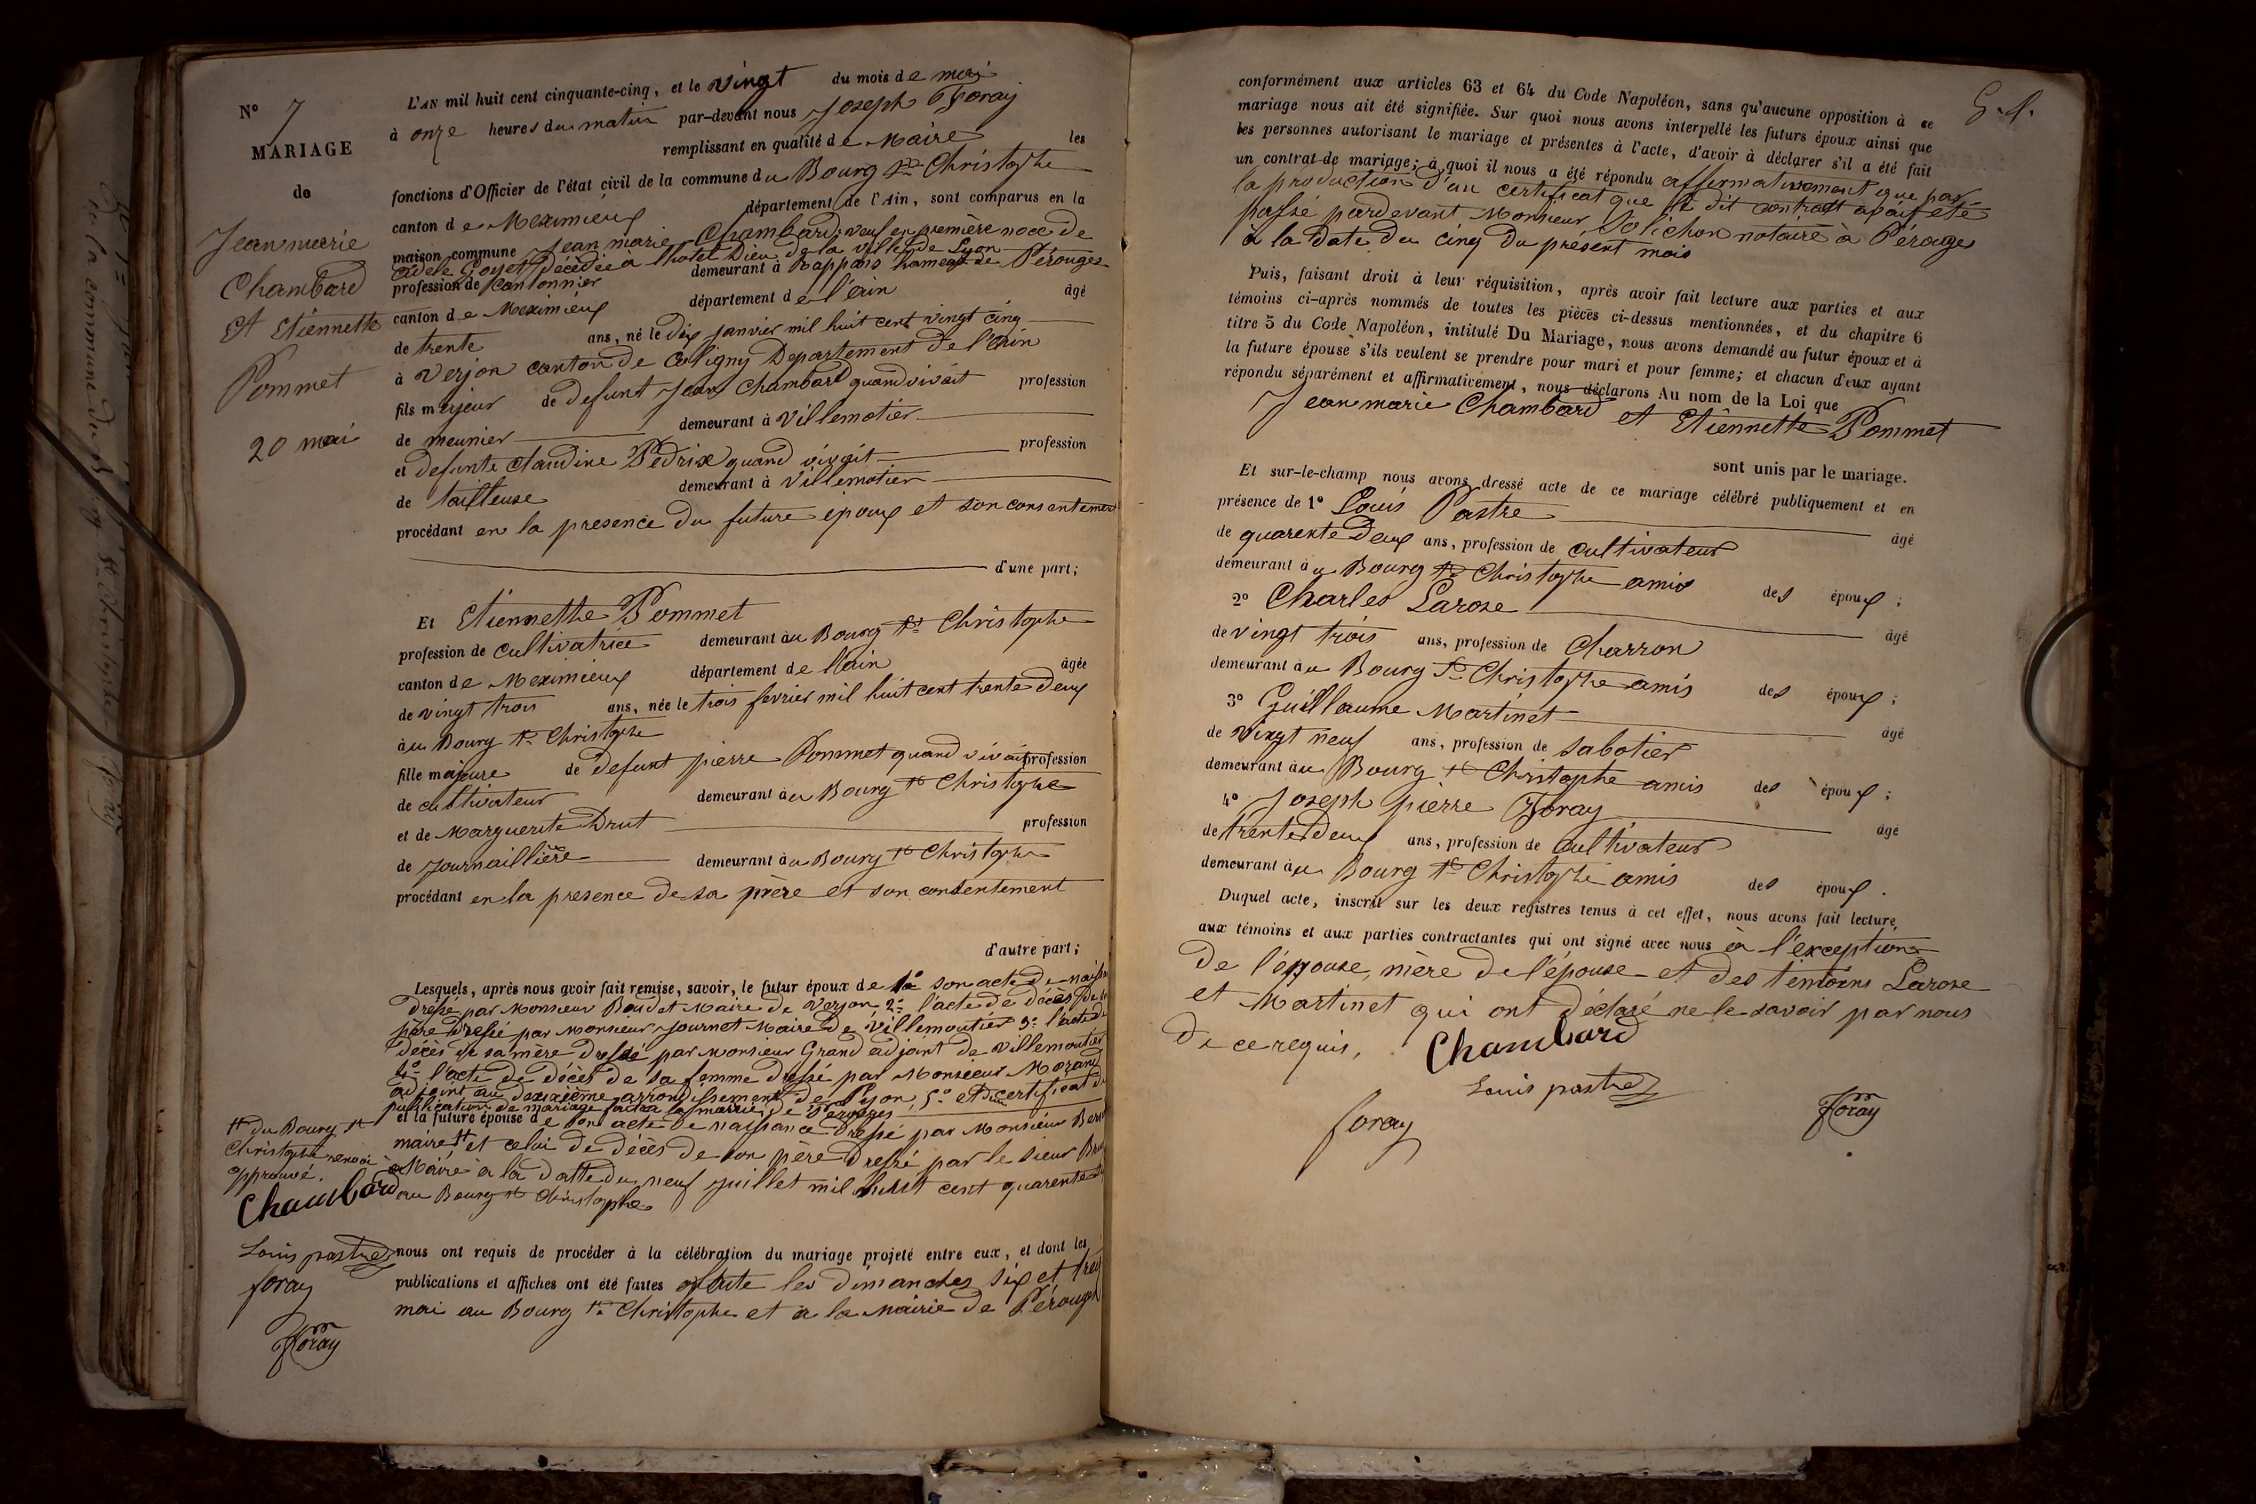 N° 7
MARIAGE
de
Jean marie
Chambard
Et Etiennette
Pommet
20 mai
L'AN mil huit cent cinquante-cinq, et le vingt du mois de mai
à onze heures du matin par-devant nous Joseph Foray
remplissant en qualité de Maire les
fonctions d'Officier de l'état civil de la commune du Bourg St Christophe
canton de Meximieux département de l'Ain, sont comparus en la
maison commune Jean marie Chambard, veuf en première noce de
Adèle Goyet décédée a l'hotel Dieu de la ville de Lyon
profession de cantonnier demeurant à Rappans hameau de Pérouges
canton de Meximieux département de l'ain âgé
de trente ans, né le dix janvier mil huit cent vingt cinq
à Verjon canton de Coligny Departement de l'Ain
fils majeur de defunt Jean Chambard quand vivait profession
de meunier demeurant à Villemotier
et defunte Claudine Pedrix quand vivait profession
de tailleuse demeurant à Villemotier
procédant en la presence du future époux et son consentement
d'une part;
Et Etiennette Pommet
profession de cultivatrice demeurant àu Bourg St Christophe
canton de Meximieux département de l'ain âgée
de vingt trois ans, née le trois fevrier mil huit cent trente deux
àu Bourg St Christophe
fille majeure de defunt pierre Pommet quand vivait profession
de cultivateur demeurant àu Bourg St Christophe
et de Marguerite Drut profession
de journaillière demeurant àu Bourg St Christophe
procédant en la presence de sa mère et son consentement
d'autre part;
Lesquels, après nous avoir fait remise, savoir, le futur époux de 1° son acte de
dressé par Monsieur Boudet Maire de Verjon 2° l'acte de décès de
père dressé par Monsieur Journet Maire de Villemoutier 3° l'acte de
décès de sa mère dressé par Monsieur Grand adjoint de Villemoutier
4° l'acte de décès de sa femme dressé par Monsieur Morand
adjoint au deuxième arrondissement de Lyon, 5° et certificat de
publication de mariage faite à la mairie de Pérouges
et la future épouse de son acte de naissance dressé par Monsieur
maire # et celui de décès de son père dressé par le sieur
Maire a la datte du neuf juillet mil huit cent quarente
au Bourg St Christophe
# du Bourg St
Christophe renvoi
approuvé.
Chambard
Louis pastre
foray
Foray
nous ont requis de procéder à la célébration du mariage projeté entre eux, et dont les
publications et affiches ont été faites les dimanches six et
mai au Bourg St Christophe et a la Mairie de Pérouges
conformément aux articles 63 et 64 du Code Napoléon, sans qu'aucune opposition à ce
mariage nous ait été signifiée. Sur quoi nous avons interpellé les futurs époux ainsi que
les personnes autorisant le mariage et présentes à l'acte, d'avoir à déclarer s'il a été fait
un contrat de mariage; à quoi il nous a été répondu affirmativement que par
la production d'un certificat que le dit contrat avait été
passé pardevant Monsieur notaire à Pérouges
à la date du cinq du présent mois
Puis, faisant droit à leur réquisition, après avoir fait lecture aux parties et aux
témoins ci-après nommés de toutes les pièces ci-dessus mentionnées, et du chapitre 6
titre 5 du Code Napoléon, intitulé Du Mariage, nous avons demandé au futur époux et à
la future épouse s'ils veulent se prendre pour mari et pour femme; et chacun d'eux ayant
répondu séparément et affirmativement, nous déclarons Au nom de la Loi que
Jean marie Chambard et Etiennette Pommet
sont unis par le mariage.
Et sur-le-champ nous avons dressé acte de ce mariage célébré publiquement et en
présence de 1° Louis Pastre âgé
de quarente deux ans, profession de cultivateur
demeurant àu Bourg St Christophe amis des époux;
2° Charles Larose âgé
de vingt trois ans, profession de Charron
demeurant àu Bourg St Christophe amis des époux;
3° Guillaume Martinet âgé
de vingt neuf ans, profession de sabotier
demeurant àu Bourg St Christophe amis des époux;
4° Joseph pierre Foray âgé
de trente deux ans, profession de cultivateur
demeurant àu Bourg St Christophe amis des époux.
Duquel acte, inscrit sur les deux registres tenus à cet effet, nous avons fait lecture,
aux témoins et aux parties contractantes qui ont signé avec nous à l'exception
de l'épouse, mère de l'épouse et des témoins Larose
et Martinet qui ont déclaré ne le savoir par nous
de ce requis,
Chambard
Louis pastre
foray
Foray